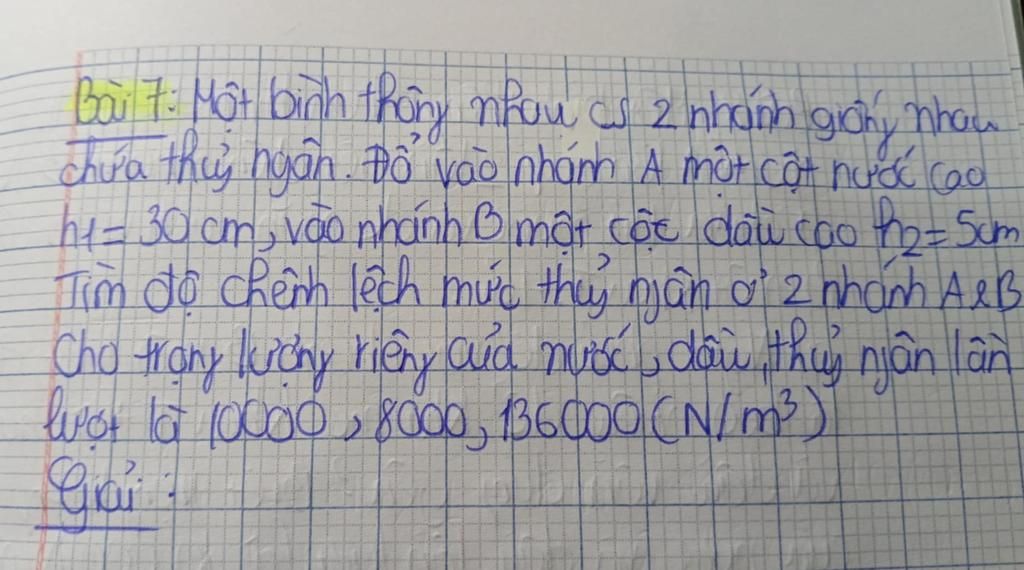 Bài 7: Một bình thông nhau có 2 nhánh giống nhau
chứa thuỷ ngân. Đổ vào nhánh A một cột nước cao
h1 = 30 cm, vào nhánh B một cột dầu cao h2 = 5cm
Tìm độ chênh lệch mức thuỷ ngân ở 2 nhánh A&B
Cho trọng lượng riêng của nước, dầu, thuỷ ngân lần
lượt là 10000, 8000, 136000 (N/m³)
Giải: